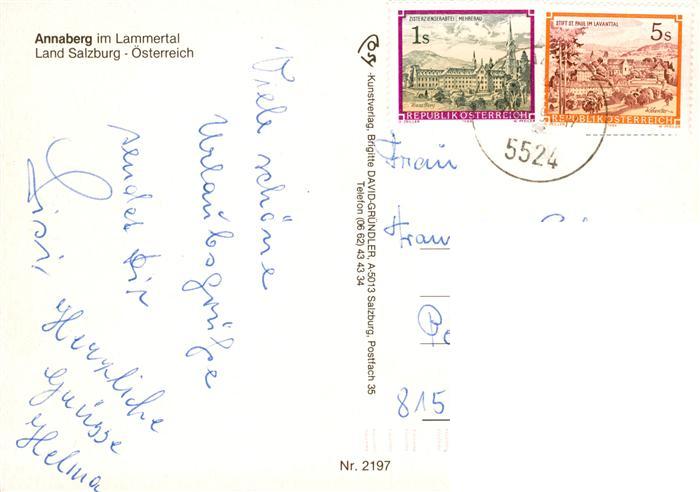 Annaberg im Lammertal
Land Salzburg - Österreich
Viele schöne
Urlaubsgrüße
sendet Dir
Sisi,
Herzliche
Grüsse
Helma
-Kunstverlag, Brigitte DAVID-GRÜNDLER, A-5013 Salzburg, Postfach 35
Telefon (06 62) 43 43 34
ZISTERZIENSERABTEI MEHRERAU
1s
REPUBLIK ÖSTERREICH
STIFT ST. PAUL IM LAVANTTAL
5s
REPUBLIK ÖSTERREICH
5524
Frau
815
Nr. 2197